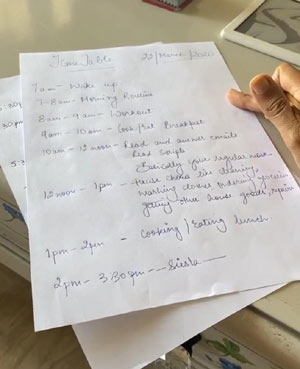 Time Table 22/March/2020
7am - Wake up
7-8am - Morning Routine
8am - 9am - Workout
9am - 10am - Cook/Eat Breakfast
10am - 12noon - Read and answer emails
Read Scripts
Basically your regular
12noon - 1pm - House chores like cleaning,
washing clothes, ordering groceries
getting other house goods, repairs
1pm - 2pm - Cooking/Eating lunch
2pm - 3:30pm --- Siesta ---